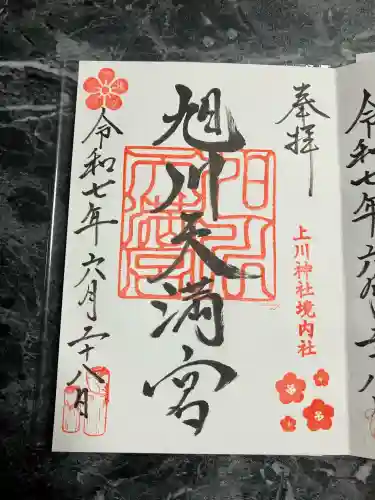 奉拝
上川神社境内社
旭川天満宮
令和七年六月二十八日
令和七年六